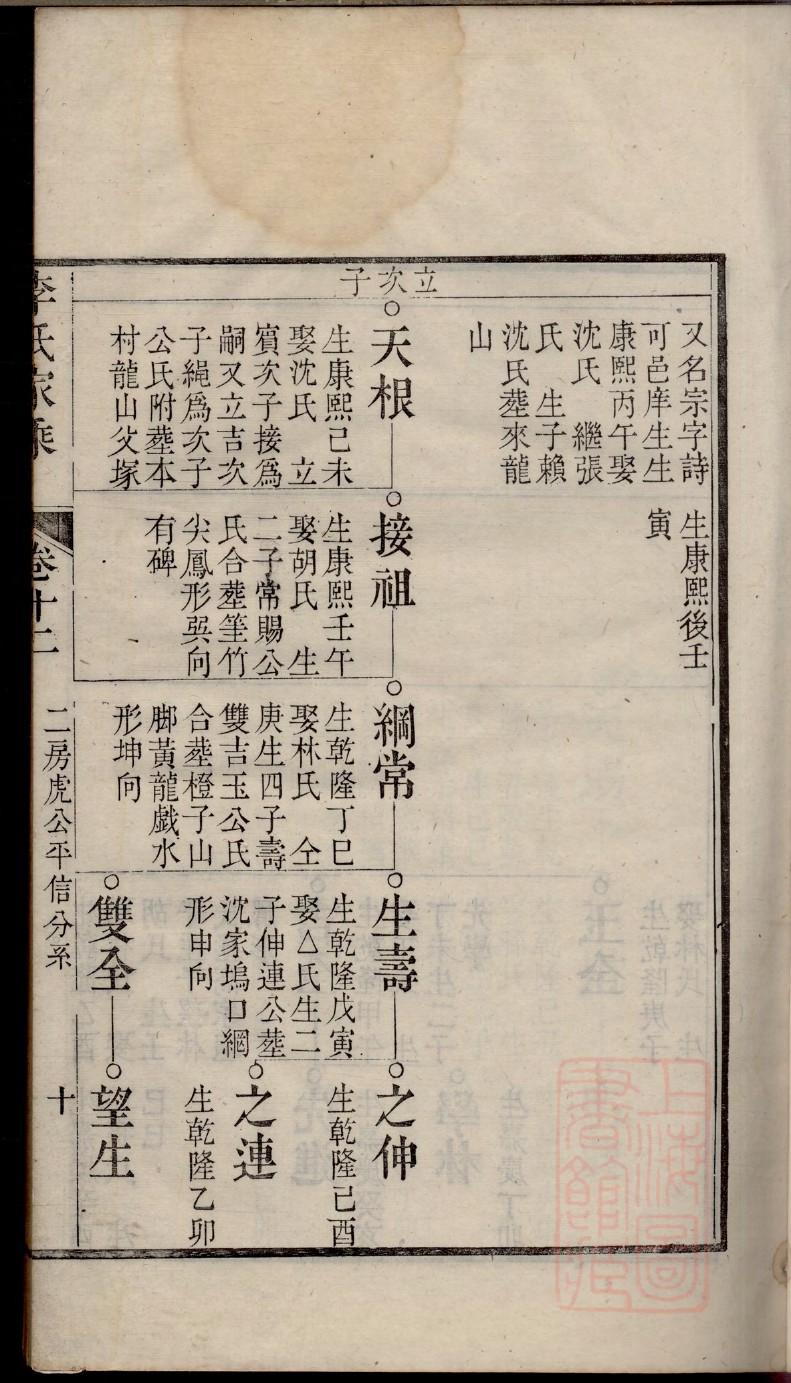 立次子
又名宗字詩
可邑庠生生
康熙丙午娶
沈氏　繼張
氏　生子賴
沈氏塟來龍
山
生康熙後壬
寅
天根
生康熙己未
娶沈氏　立
賓次子接爲
嗣又立吉次
子繩爲次子
公氏附塟本
村龍山父塚
接祖
生康熙壬午
娶胡氏　生
二子常賜公
氏合塟筀竹
尖鳳形巽向
有碑
綱常
生乾隆丁巳
娶林氏　仝
庚生四子壽
雙吉玉公氏
合塟橙子山
脚黃龍戯水
形坤向
生壽
生乾隆戊寅
娶△氏生二
子伸連公塟
沈家塢口網
形申向
之伸
生乾隆己酉
之連
生乾隆乙卯
雙全
望生
李氏家乘
卷十二
二房虎公平信分系
十
上海圖
書館藏